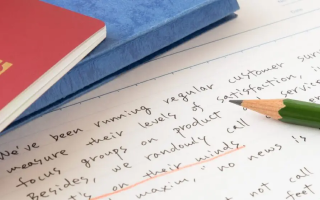 We've been running regular customer sur
measure their levels of satisfaction, i
focus groups on product servic
Besides, we randomly call
t's on their minds
maxim, "no news is
not call
feet